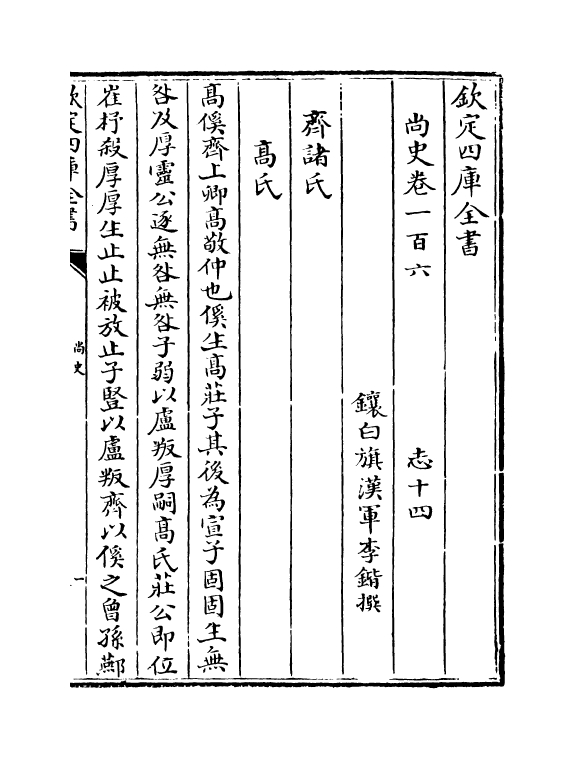 欽定四庫全書
尚史卷一百六　志十四
鑲白旗漢軍李鍇撰
齊諸氏
高氏
高傒齊上卿高敬仲也傒生高莊子其後為宣子固固生無
咎及厚靈公逐無咎無咎子弱以盧叛厚嗣高氏莊公即位
崔杼殺厚厚生止止被放止子豎以盧叛齊以傒之曾孫酀
欽定四庫全書
尚史
一